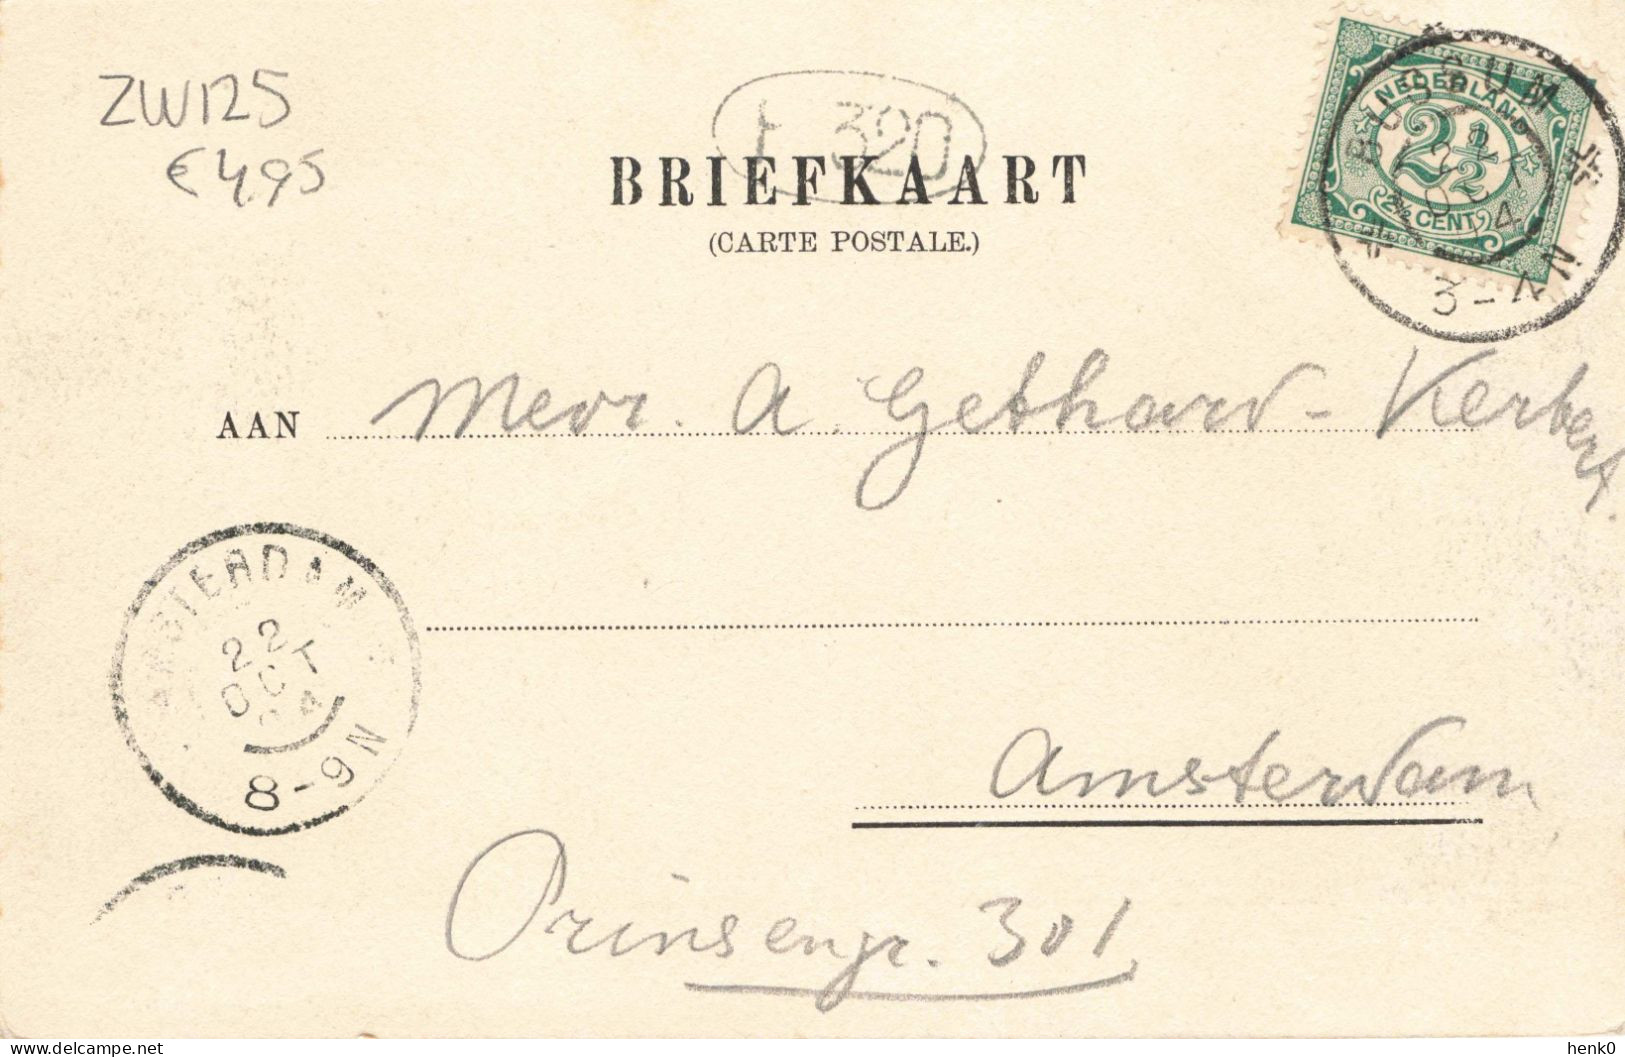 ZW125
€ 4,95
320
BRIEFKAART
(CARTE POSTALE.)
NEDERLAND
2 1/2
2½ CENT
BUSSUM
22
04
3-4N
AAN Mevr. A. Gethard-Kerbert.
AMSTERDAM
22
OCT
04
8-9N
Amsterdam
Prinsengr. 301
www.delcampe.net
henk0